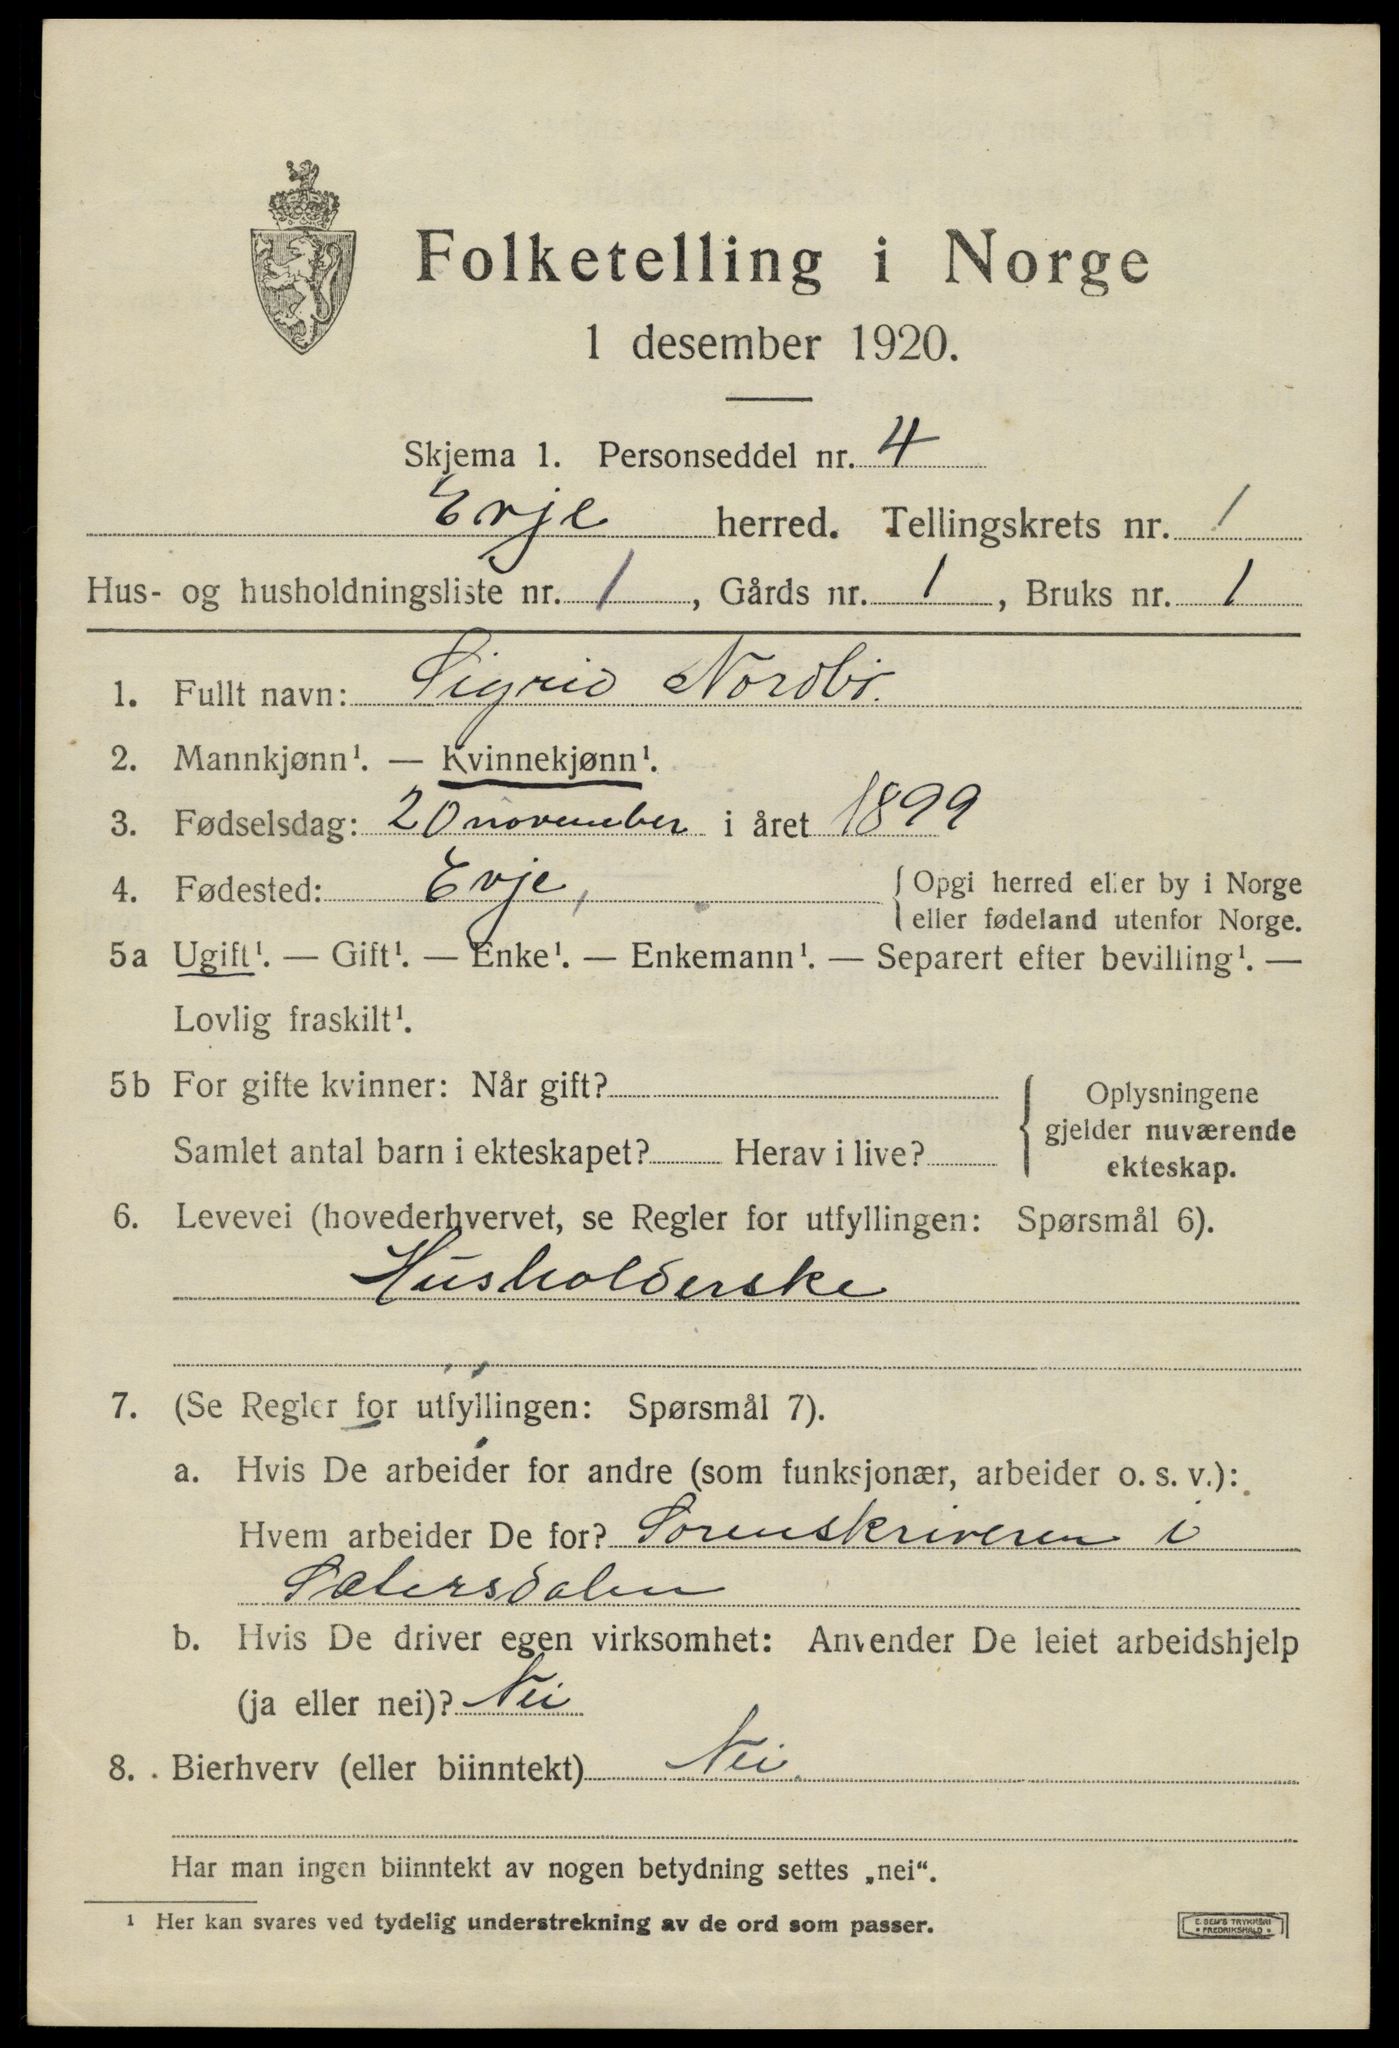 Folketelling i Norge
1 desember 1920.
Skjema 1. Personseddel nr. 4
Evje herred. Tellingskrets nr. 1
Hus- og husholdningsliste nr. 1, Gårds nr. 1, Bruks nr. 1
1. Fullt navn: Sigrid Nordbö.
2. Mannkjønn¹. — Kvinnekjønn¹.
3. Fødselsdag: 20 november i året 1899
4. Fødested: Evje, { Opgi herred eller by i Norge
eller fødeland utenfor Norge.
5a Ugift¹. — Gift¹. — Enke¹. — Enkemann¹. — Separert efter bevilling¹. —
Lovlig fraskilt¹.
5b For gifte kvinner: Når gift?
Samlet antal barn i ekteskapet? Herav i live?
{ Oplysningene
gjelder nuværende
ekteskap.
6. Levevei (hovederhvervet, se Regler for utfyllingen: Spørsmål 6).
Husholderske
7. (Se Regler for utfyllingen: Spørsmål 7).
a. Hvis De arbeider for andre (som funksjonær, arbeider o. s. v.):
Hvem arbeider De for? Sorenskriveren i
Sætersdalen
b. Hvis De driver egen virksomhet: Anvender De leiet arbeidshjelp
(ja eller nei)? Nei
8. Bierhverv (eller biinntekt) Nei.
Har man ingen biinntekt av nogen betydning settes „nei“.
¹ Her kan svares ved tydelig understrekning av de ord som passer.
E. SEM'S TRYKKERI
• FREDRIKSHALD •